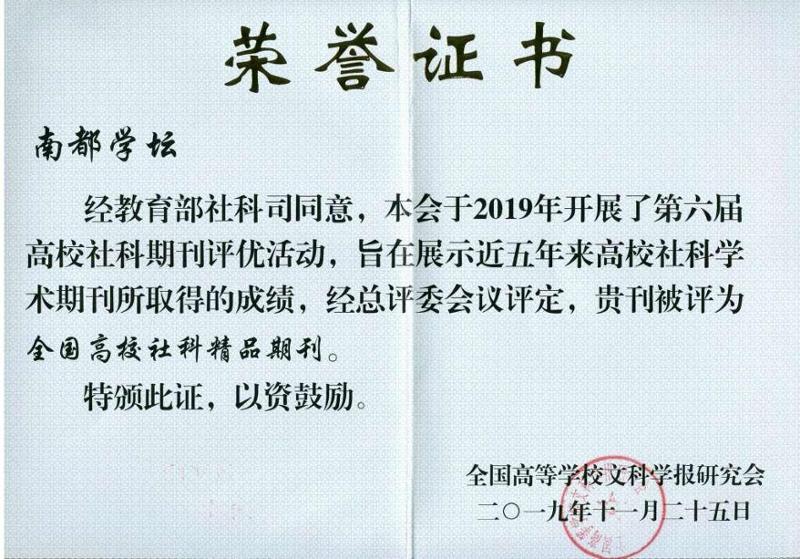 荣誉证书
南都学坛
经教育部社科司同意，本会于2019年开展了第六届
高校社科期刊评优活动，旨在展示近五年来高校社科学
术期刊所取得的成绩，经总评委会议评定，贵刊被评为
全国高校社科精品期刊。
特颁此证，以资鼓励。
全国高等学校文科学报研究会
二〇一九年十一月二十五日